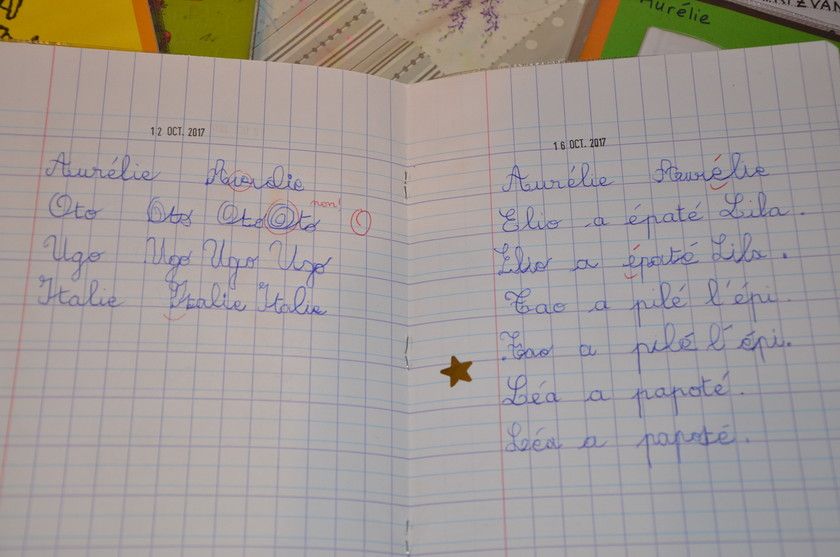 Aurélie
12 OCT. 2017
Aurélie Aurdie
Oto Oto Oto Oto non!
Ugo Ugo Ugo Ugo
Italie Italie Italie
16 OCT. 2017
Aurélie Aurélie
Elio a épaté Lila.
Elio a épaté Lila.
Tao a pilé l'épi.
Tao a pilé l'épi.
Léa a papoté.
Léa a papoté.